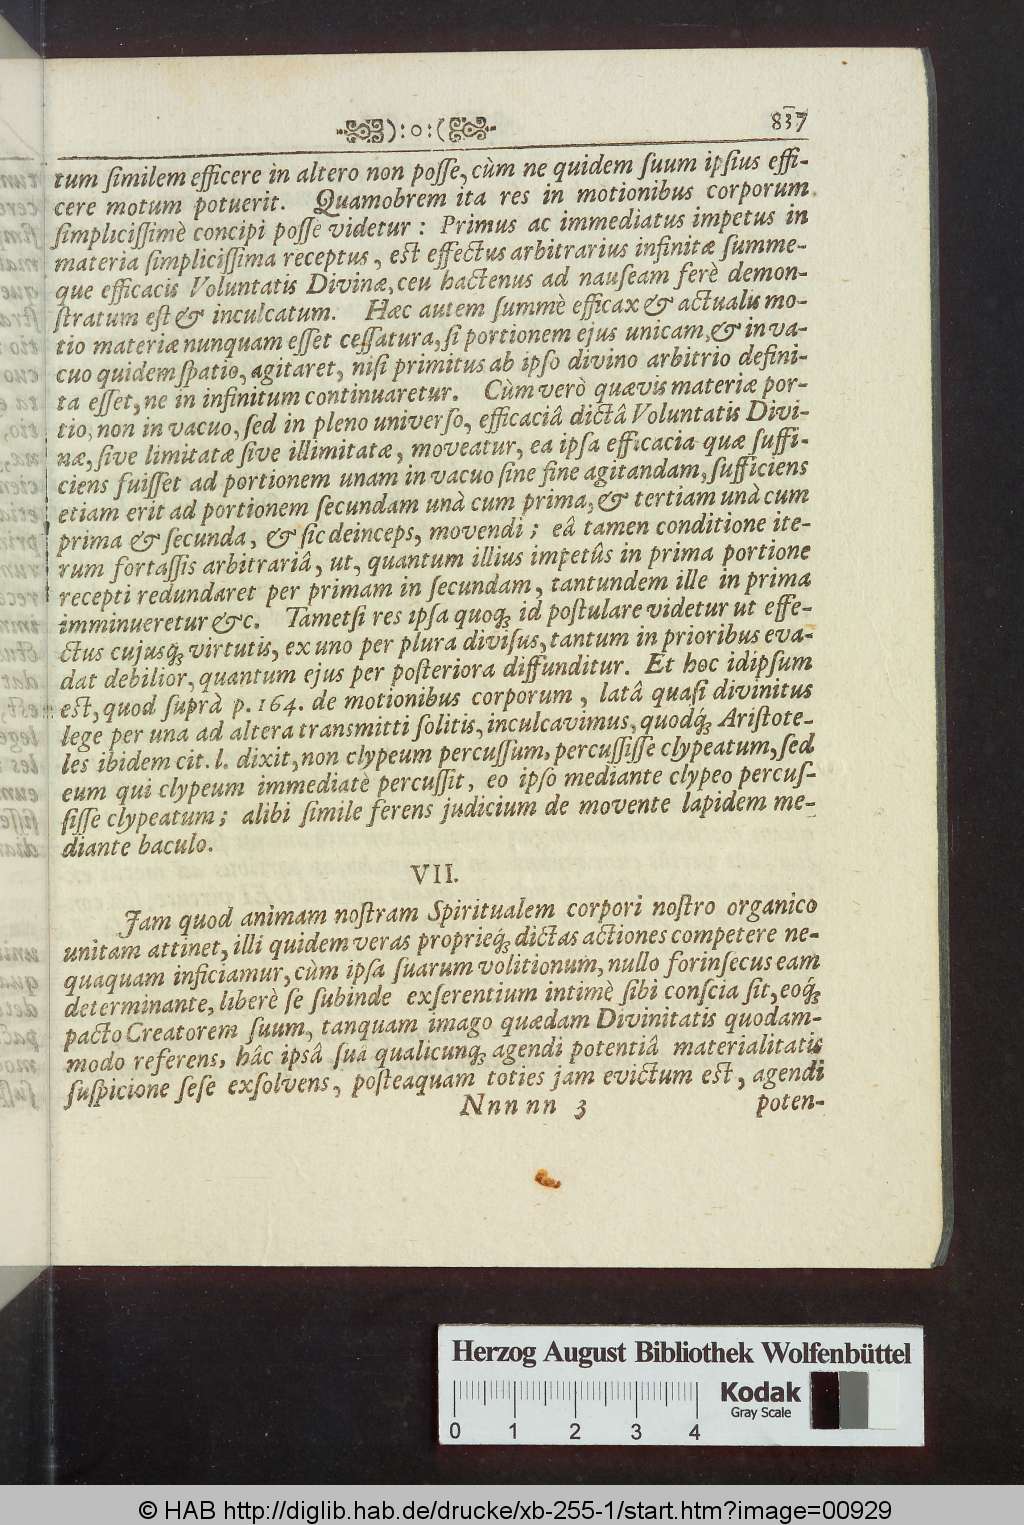 ):o:( 837
tum ſimilem efficere in altero non poſſe, cùm ne quidem ſuum ipſius effi-
cere motum potuerit. Quamobrem ita res in motionibus corporum
ſimpliciſſimè concipi poſſe videtur: Primus ac immediatus impetus in
materia ſimpliciſſima receptus, eſt effectus arbitrarius infinitæ ſumme-
que efficacis Voluntatis Divinæ, ceu hactenus ad nauſeam ferè demon-
ſtratum eſt & inculcatum. Hæc autem ſummè efficax & actualis mo-
tio materiæ nunquam eſſet ceſſatura, ſi portionem ejus unicam, & in va-
cuo quidem ſpatio, agitaret, niſi primitus ab ipſo divino arbitrio defini-
ta eſſet, ne in infinitum continuaretur. Cùm verò quævis materiæ por-
tio, non in vacuo, ſed in pleno univerſo, efficaciâ dictâ Voluntatis Divi-
næ, ſive limitatæ ſive illimitatæ, moveatur, ea ipſa efficacia quæ ſuffi-
ciens fuiſſet ad portionem unam in vacuo ſine fine agitandam, ſufficiens
etiam erit ad portionem ſecundam unà cum prima, & tertiam unà cum
prima & ſecunda, & ſic deinceps, movendi; eâ tamen conditione ite-
rum fortaſſis arbitrariâ, ut, quantum illius impetûs in prima portione
recepti redundaret per primam in ſecundam, tantundem ille in prima
imminueretur &c. Tametſi res ipſa quoq; id poſtulare videtur ut effe-
ctus cujusq; virtutis, ex uno per plura diviſus, tantum in prioribus eva-
dat debilior, quantum ejus per poſteriora diffunditur. Et hoc idipſum
eſt, quod ſuprà p. 164. de motionibus corporum, latâ quaſi divinitus
lege per una ad altera transmitti ſolitis, inculcavimus, quodq́; Ariſtote-
les ibidem cit. l. dixit, non clypeum percuſſum, percuſſiſſe clypeatum, ſed
eum qui clypeum immediatè percuſſit, eo ipſo mediante clypeo percuſ-
ſiſſe clypeatum; alibi ſimile ferens judicium de movente lapidem me-
diante baculo.
VII.
Jam quod animam noſtram Spiritualem corpori noſtro organico
unitam attinet, illi quidem veras proprieq́; dictas actiones competere ne-
quaquam inficiamur, cùm ipſa ſuarum volitionum, nullo forinſecus eam
determinante, liberè ſe ſubinde exſerentium intimè ſibi conſcia ſit, eoq́;
pacto Creatorem ſuum, tanquam imago quædam Divinitatis quodam-
modo referens, hâc ipsâ ſuâ qualicunq; agendi potentiâ materialitatis
ſuſpicione ſeſe exſolvens, poſteaquam toties jam evictum eſt, agendi
Nnn nn 3 poten-
Herzog August Bibliothek Wolfenbüttel
Kodak
Gray Scale
0 1 2 3 4
© HAB http://diglib.hab.de/drucke/xb-255-1/start.htm?image=00929